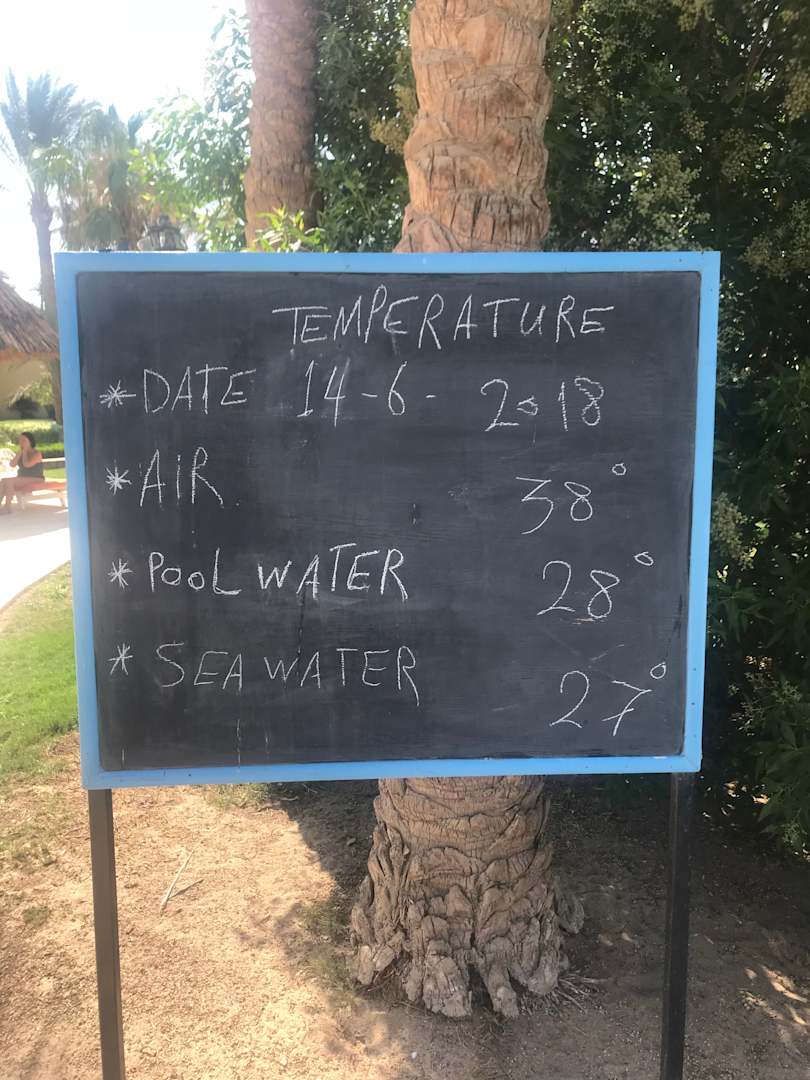 TEMPERATURE
* DATE 14-6- 2018
* AIR 38°
* POOL WATER 28°
* SEA WATER 27°